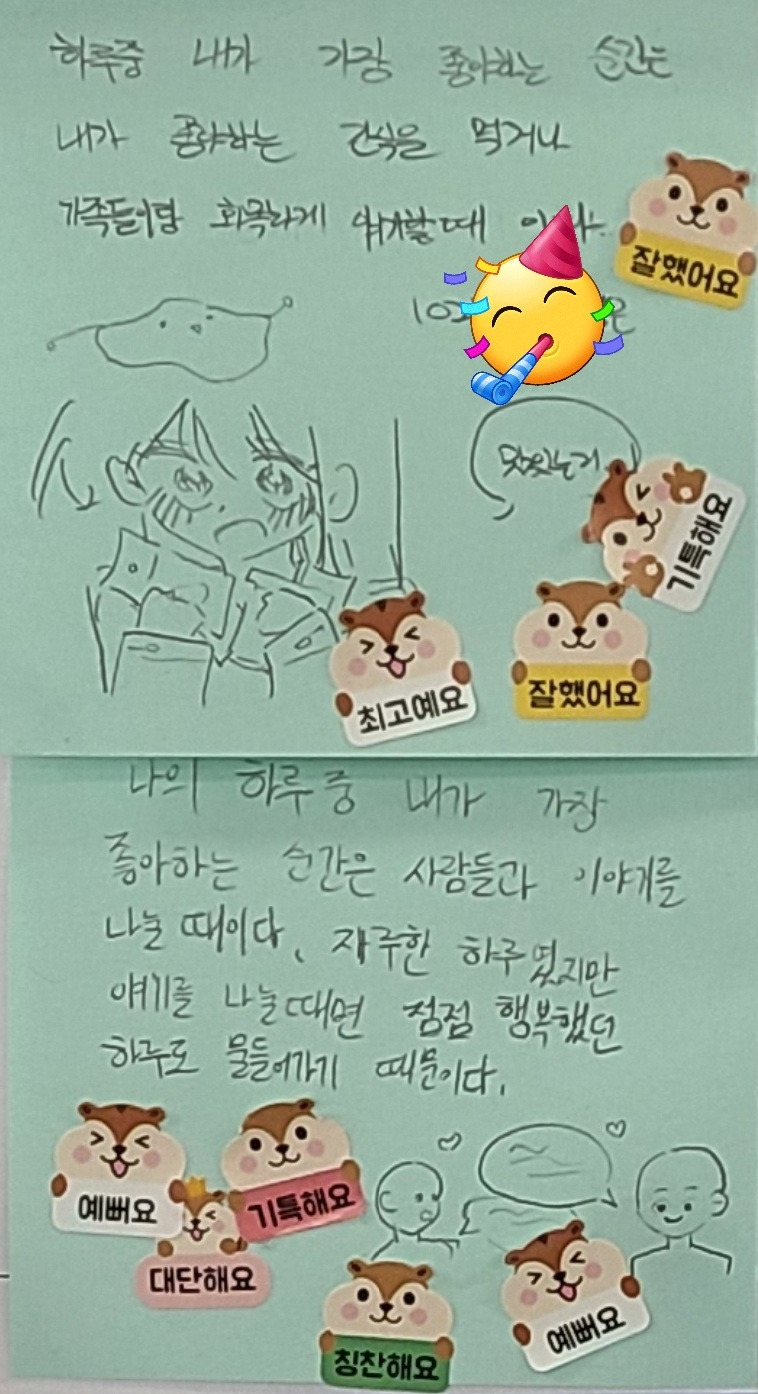 하루중 내가 가장 좋아하는 순간는
내가 좋아하는 간식을 먹거나
가족들이랑 화목하게 얘기할때
잘했어요
103
맛있는거
기특해요
최고예요
잘했어요
나의 하루 중 내가 가장
좋아하는 순간은 사람들과 이야기를
나눌 때이다. 지루한 하루였지만
얘기를 나눌때면 점점 행복했던
하루로 물들어가기 때문이다.
예뻐요
기특해요
대단해요
칭찬해요
예뻐요